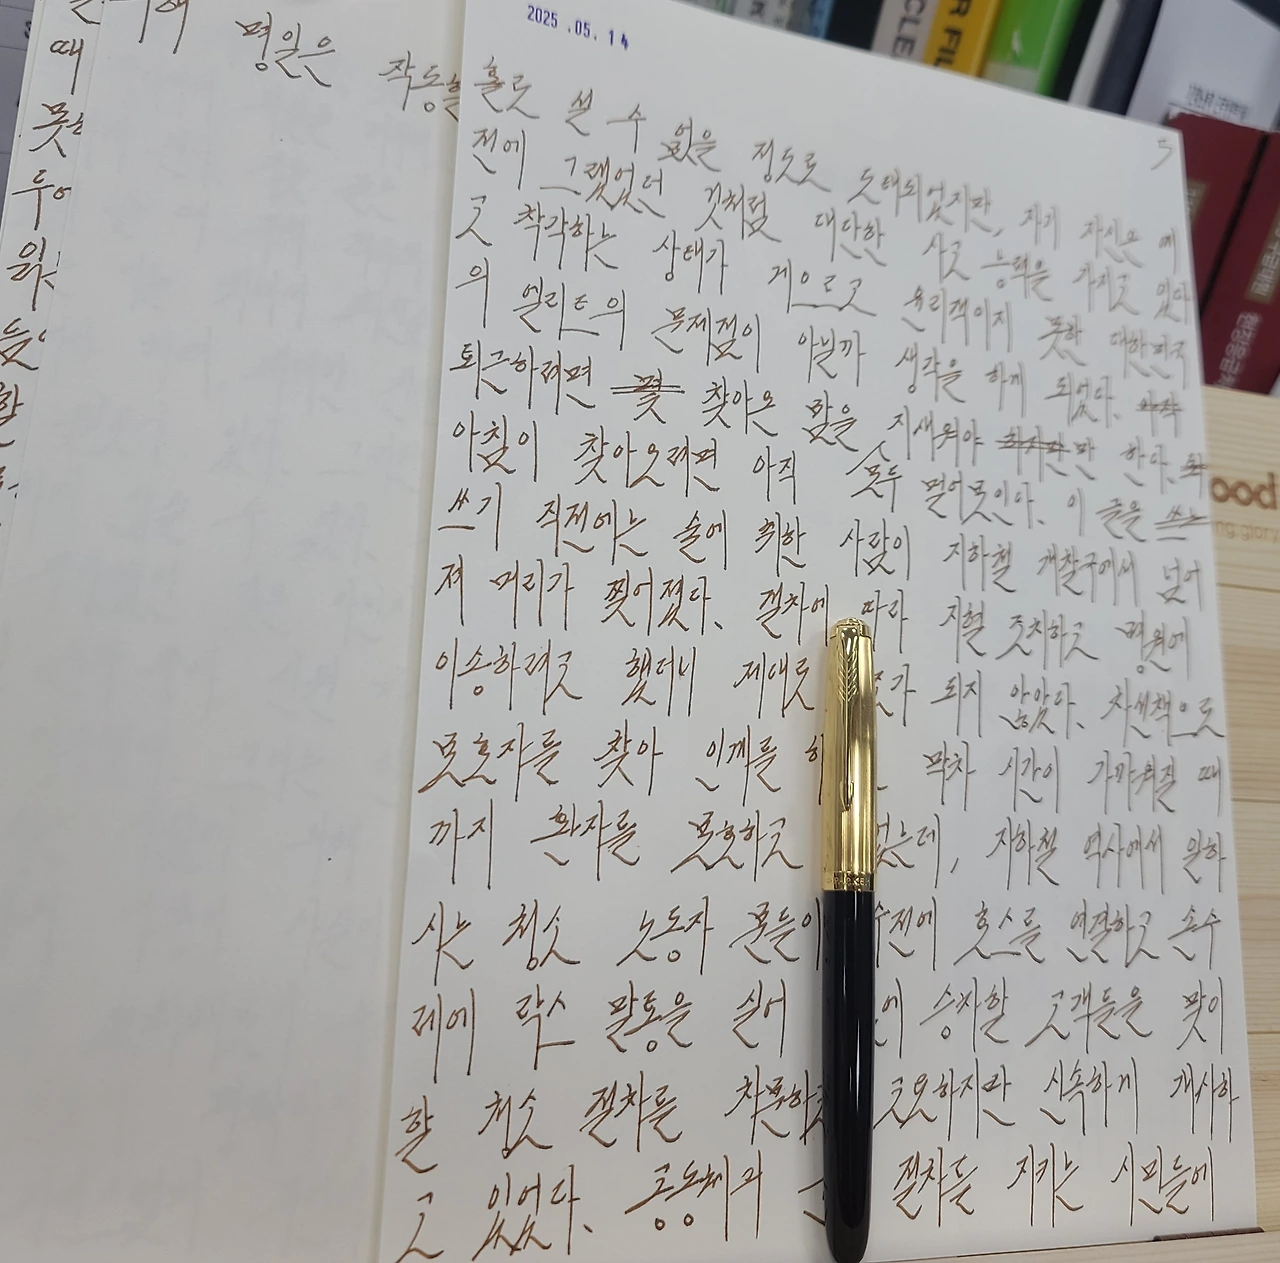 2025.05.14
5
홀로 설 수 없을 정도로 도태되었지만, 자기 자신은 예
전에 그랬었던 것처럼 대단한 사고 능력을 가지고 있다
고 착각하는 상태가 게으르고 윤리적이지 못한 대한민국
의 엘리트의 문제점이 아닐까 생각을 하게 되었다.
퇴근하려면 찾아온 밤을 지새워야 만 한다.
아침이 찾아오려면 아직 모두 멀어 이다. 이 글을
쓰기 직전에는 술에 취한 사람이 지하철 개찰구에서 넘어
져 머리가 찢어졌다. 절차에 따라 지혈 조치하고 병원에
이송하려고 했더니 제대로 되지 않았다. 차선책으로
보호자를 찾아 인계를 막차 시간이 가까워질 때
까지 환자를 보호하고 있는데, 지하철 역사에서 일하
시는 청소 노동자 분들이 수전에 호스를 연결하고 손수
레에 락스 말통을 실어 에 승차할 고객들을 맞이
할 청소 절차를 차분하고 고요하지만 신속하게 개시하
고 있었다. 공동체과 절차를 지키는 시민들에
병일은 작동할
때
못
두어
CLE
R FIL
boo